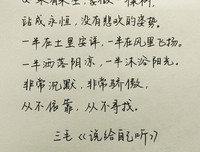 如果有来生，要做一棵树，
站成永恒，没有悲欢的姿势。
一半在土里安详，一半在风里飞扬。
一半洒落阴凉，一半沐浴阳光。
非常沉默、非常骄傲，
从不依靠，从不寻找。
三毛《说给自己听》